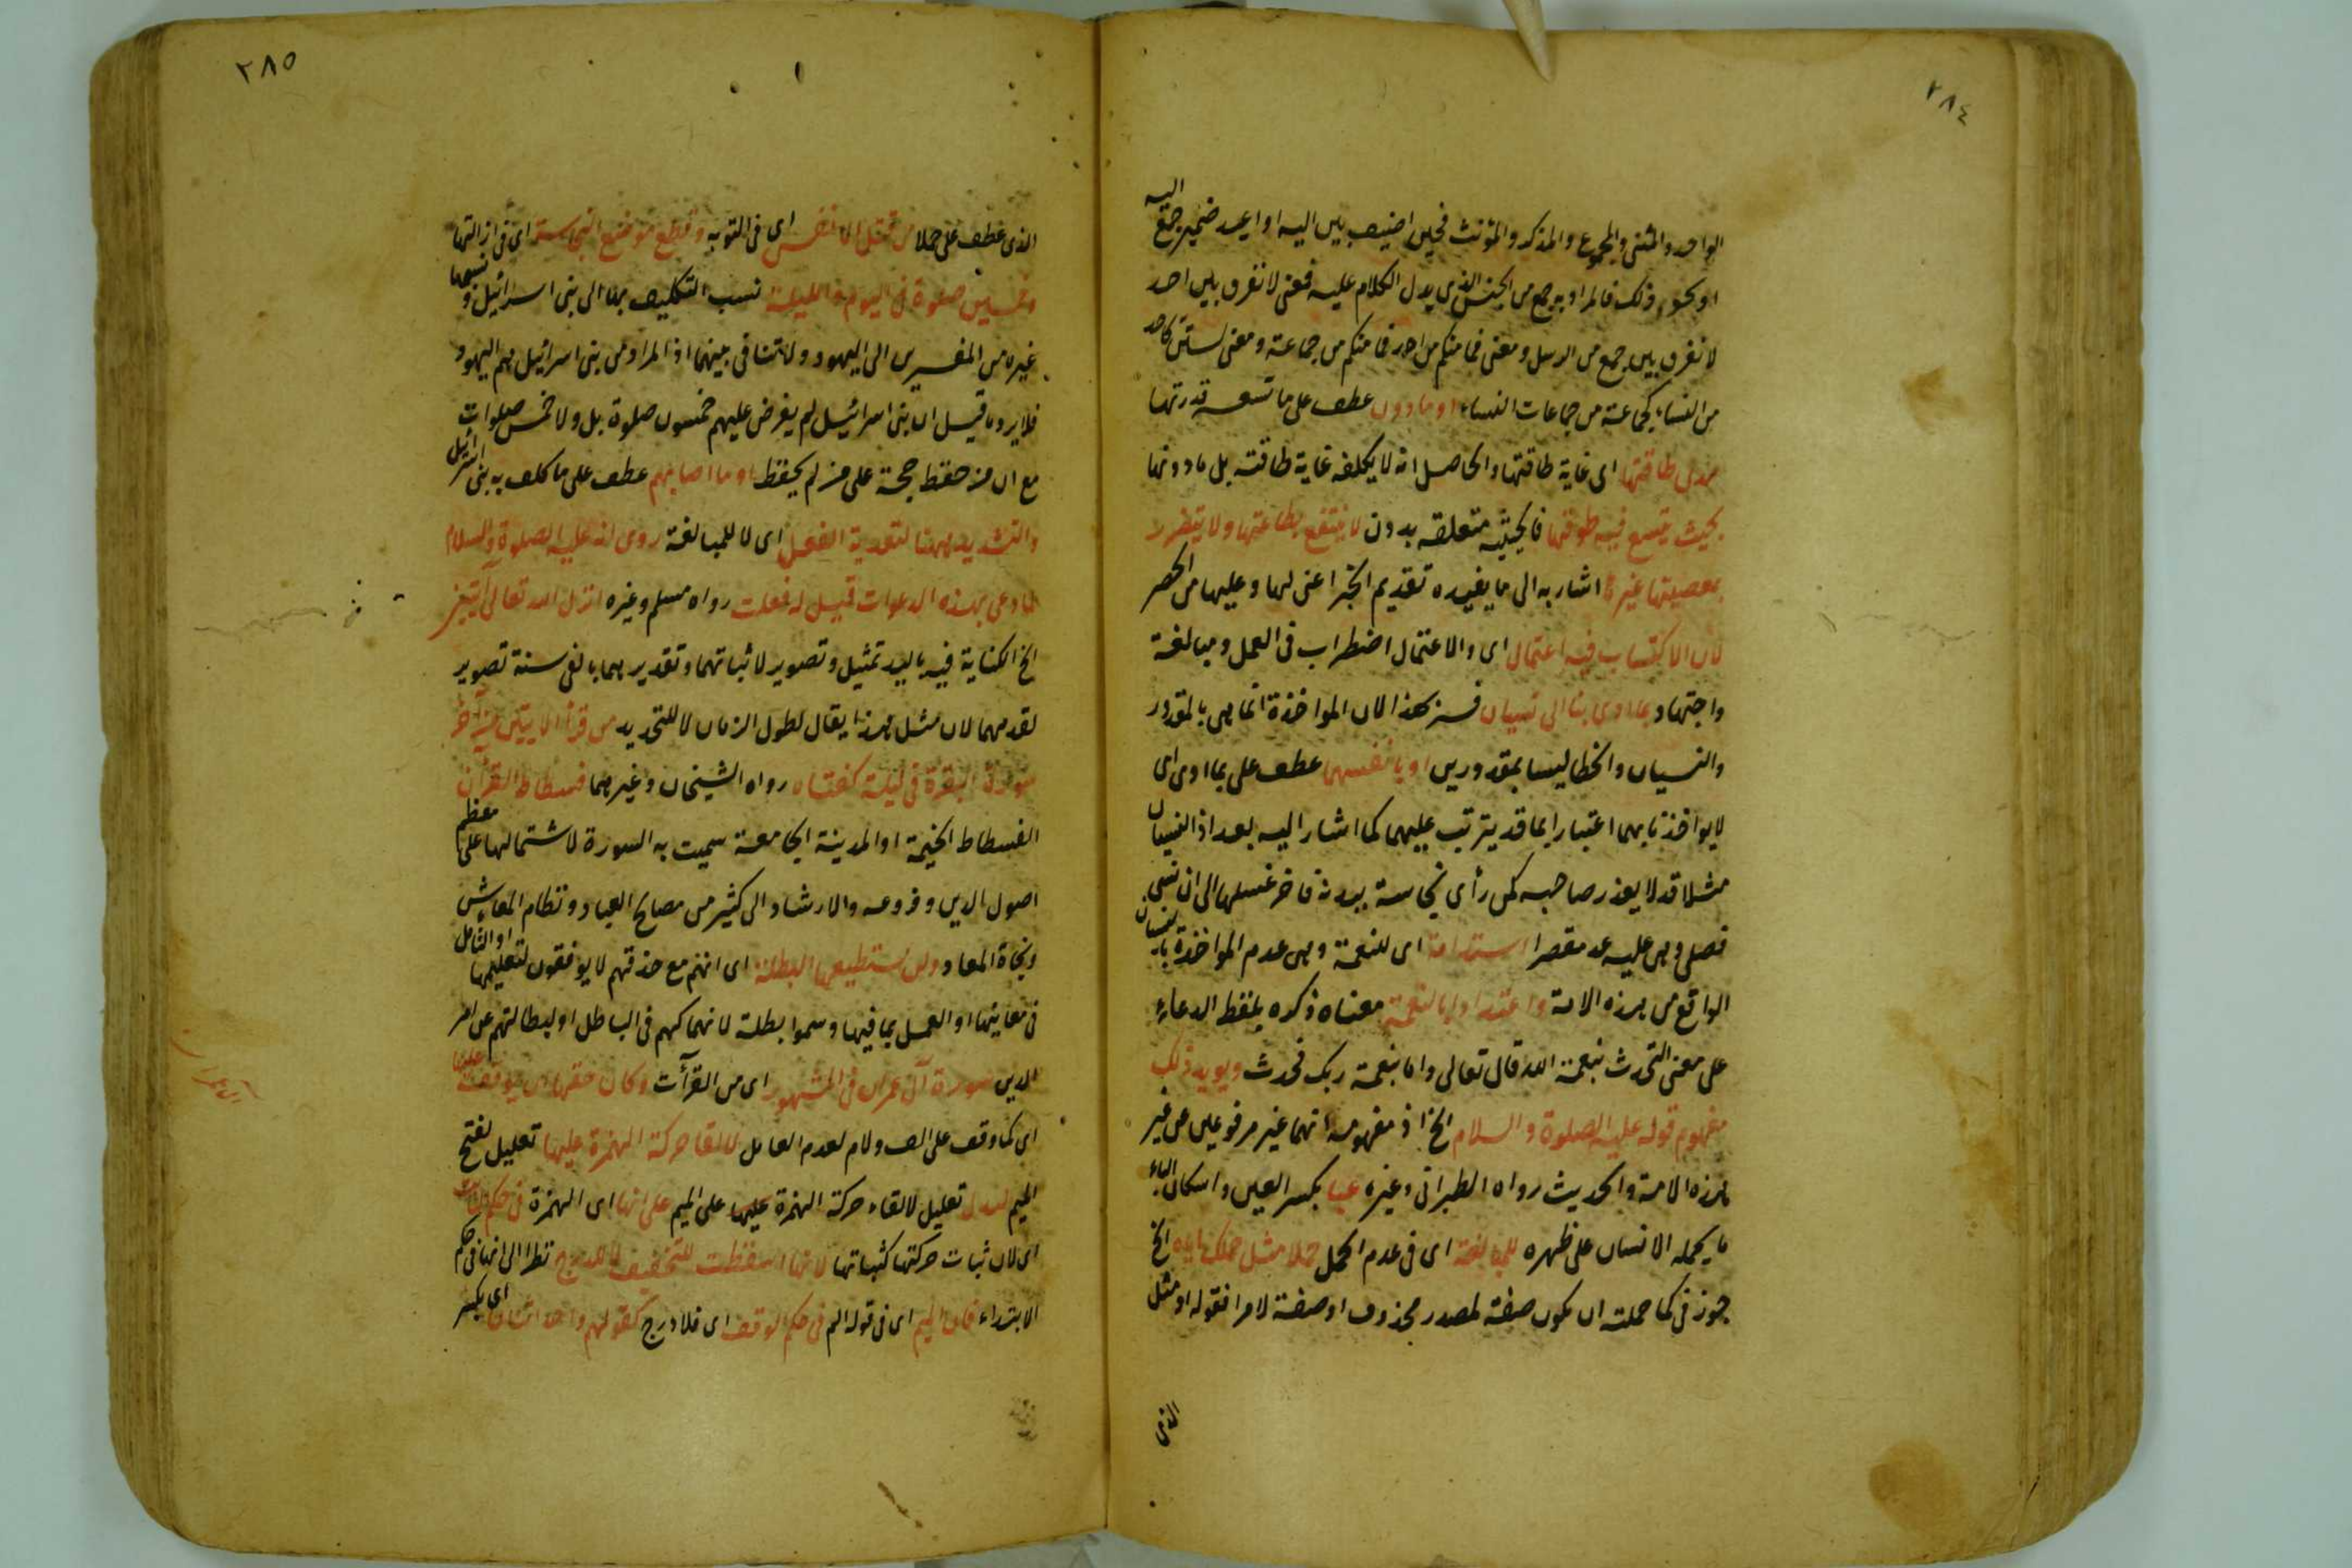 ٢٨٤
الواحد والمثنى والمجموع والمذكر والمؤنث فحين اضيف بين اليه او اعيد ضمير جمع اليه
او نحو ذلك فالمراد به جمع من الجنس الذي يدل الكلام عليه فمعنى لا نفرق بين احد
لا نفرق بين جمع من الرسل ومعنى فما منكم من احد فما منكم من جماعة ومعنى لستن كاحد
من النساء كجماعة من جماعات النساء او ما دون عطف على ما تسعه قدرتها
مدى طاقتها اى غاية طاقتها والحاصل انه لا يكلفه غاية طاقته بل ما دونها
بحيث يتسع فيه طوقها فالحيثية متعلقة بدون لا ينتفع بطاعتها ولا يتضرر
بمعصيتها غيرها اشار به الى ما يفيده تقديم الخبر اعنى لها وعليها من الحصر
لان الاكتساب فيه اعتمال اى والاعتمال اضطراب فى العمل ومبالغة
واجتهاد بما ادى بنا الى نسيان فسره بهذا لان المواخذة انما هى بالمقدور
والنسيان والخطا ليسا بمقدورين او بانفسهما عطف على بما ادى اى
لا يواخذنا بهما اعتبارا بما قد يترتب عليهما كما اشار اليه بعد اذ النسيان
مثلا قد لا يعذر صاحبه كمن رأى نجاسة ببدنه فاخر غسلها الى ان نسى
فصلى وهى عليه عد مقصرا استدامة اى للنعمة وهى عدم المواخذة بالنسيان
الواقع من هذه الامة واعتدادا بالنعمة معناه ذكره بلفظ الدعاء
على معنى التحدث بنعمة الله قال تعالى واما بنعمة ربك فحدث ويويد ذلك
مفهوم قوله عليه الصلوة والسلام الخ اذ مفهومه انهما غير مرفوعين عن غير
هذه الامة والحديث رواه الطبرانى وغيره عبا بكسر العين واسكان الباء
ما يحمله الانسان على ظهره للمبالغة اى فى عدم الحمل حملا مثل حملك اياه الخ
جوز فى كما حملته ان يكون صفة لمصدر محذوف او صفة لاصرا فقوله او مثل
الذى
٢٨٥
الذى عطف على حملا من قتل الانفس اى فى التوبه وقطع موضع النجاسة اى فى ازالتها
وخمسين صلوة فى اليوم والليلة نسب التكليف بها الى بنى اسرائيل ونسبها
غيره من المفسرين الى اليهود ولا تنافى بينهما اذ المراد من بنى اسرائيل هم اليهود
فلا يرد ما قيل ان بنى اسرائيل لم يفرض عليهم خمسون صلوة بل ولا خمس صلوات
مع ان من حفظ حجة على من لم يحفظ او ما اصابهم عطف على ما كلف به بنى اسرائيل
والتشديد ههنا لتعدية الفعل اى لا للمبالغة روى انه عليه الصلوة والسلام
لما دعى بهذه الدعوات قيل له فعلت رواه مسلم وغيره انزل الله تعالى آيتين
الخ الكناية فيه باليد تمثيل وتصوير لاثباتهما وتقديرهما بالفى سنة تصوير
لقدمهما لان مثل هذا يقال لطول الزمان لا للتحديد من قرأ الآيتين من آخر
سورة البقرة فى ليلة كفتاه رواه الشيخان وغيرهما فسطاط القرآن
الفسطاط الخيمة او المدينة الجامعة سميت به السورة لاشتمالها على معظم
اصول الدين وفروعه والارشاد الى كثير من مصالح العباد ونظام المعاش
ونجاة المعاد ولن تستطيعها البطلة اى انهم مع حذقهم لا يوفقون لتعليمها او التامل
فى معانيها او العمل بما فيها وسموا بطلة لانهماكهم فى الباطل او لبطالتهم عن امر
الدين سورة آل عمران فى المشهور اى من القرآت وكان حقها ان يوقف عليها
اى كما وقف على الف ولام لعدم العامل لالقا حركة الهمزة عليها تعليل لفتح
الميم ليدل تعليل لالقاء حركة الهمزة عليها على الميم على انها اى الهمزة فى حكم الثابت
اى لان ثبات حركتها كثباتها لانها اسقطت للتخفيف لا للدرج نظرا الى انها فى حكم
الابتداء فان الميم اى فى قوله الم فى حكم الوقف اى فلا درج كقولهم واحد اثنان اى بكسر